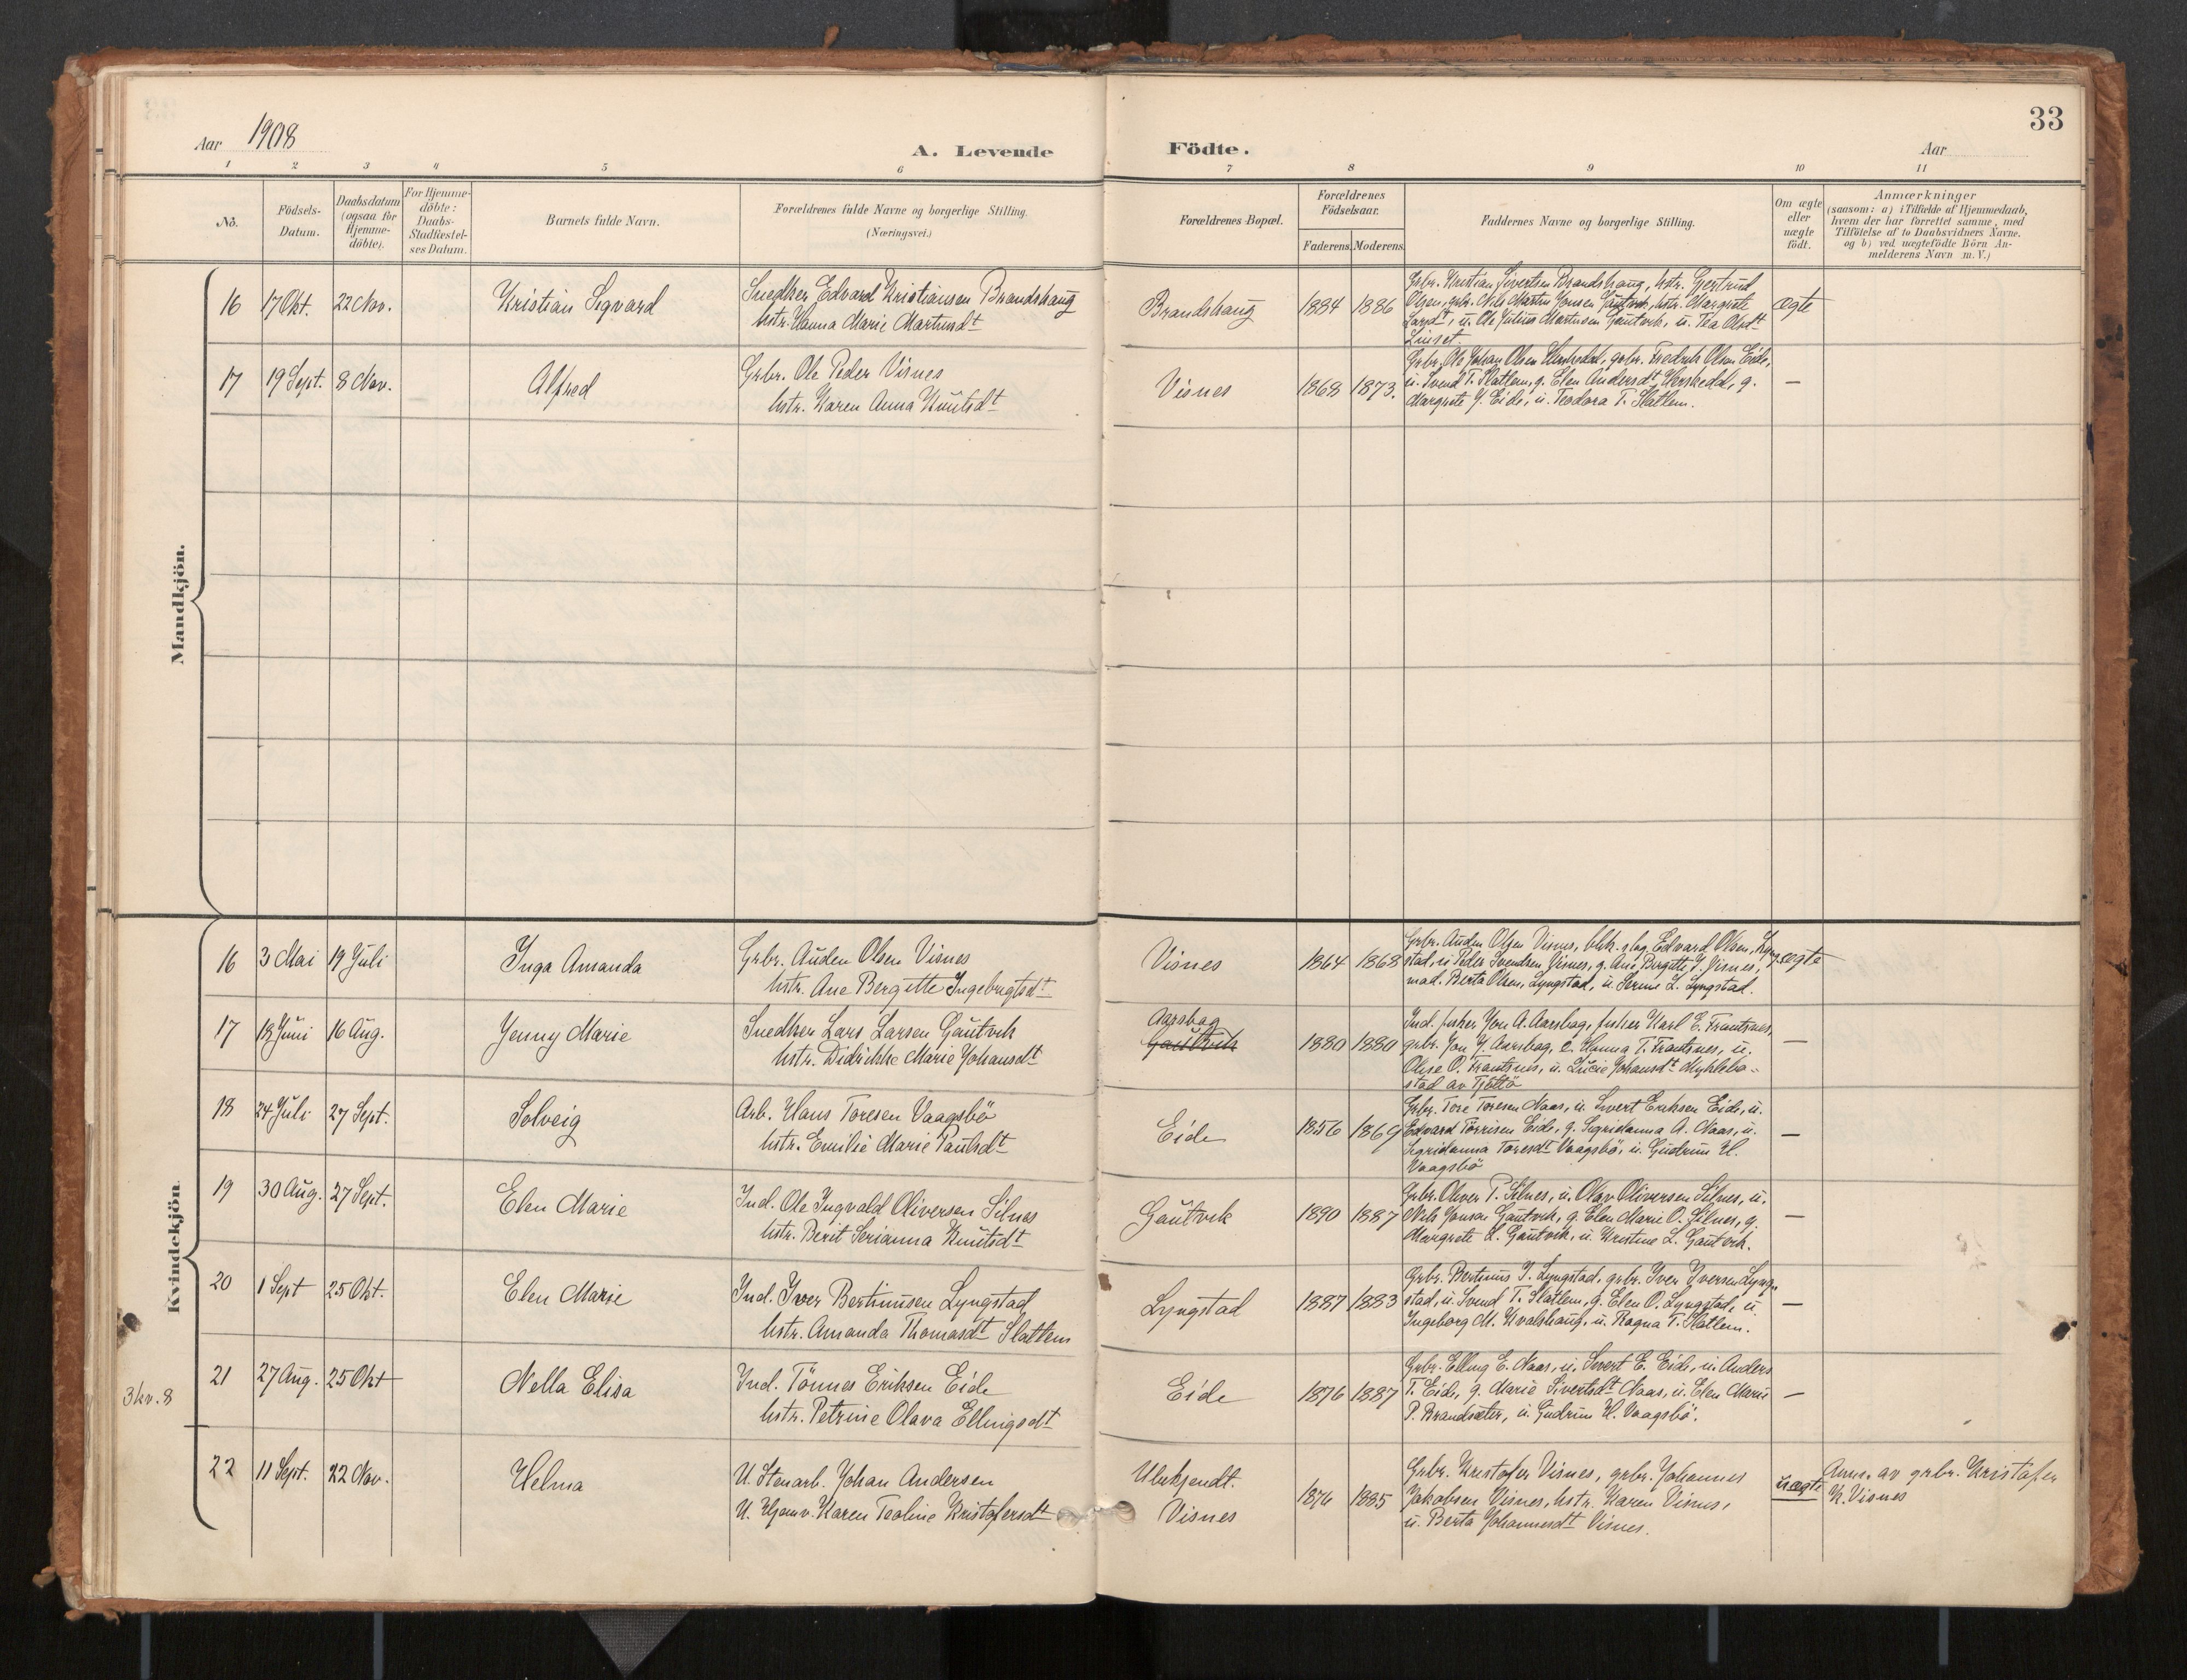 33
Aar 1908
A. Levende Födte.
Aar
1 2 3 4 5 6 7 8 9 10 11
No.
Födsels-
Datum.
Daabsdatum
(ogsaa for
Hjemme-
döbte).
For Hjemme-
döbte:
Daabs-
Stadfæstel-
ses Datum.
Barnets fulde Navn.
Forældrenes fulde Navne og borgerlige Stilling.
(Næringsvei.)
Forældrenes Bopæl.
Forældrenes
Födselsaar.
Faderens. Moderens.
Faddernes Navne og borgerlige Stilling.
Om ægte
eller
uægte
födt.
Anmærkninger
(saasom: a) i Tilfælde af Hjemmedaab,
hvem der har forrettet samme, med
Tilföielse af to Daabsvidners Navne,
og b) ved uægtefödte Börn An-
melderens Navn m.V.)
Mandkjön.
16 17 Okt. 22 Nov. Kristian Sigvard
Snedker Edvard Kristiansen Brandshaug
hstr. Hanna Marie Martinsdt
Brandshaug 1884 1886
Grbr. Kristian Sivertsen Brandshaug, hstr. Gjertrud
Olsen, grbr. Nils Martin Jonsen Gautvik, hstr. Margrete
Larsdt, u. Ole Julius Martinsen Gautvik, u. Tea Olsdt
Linset.
ægte
17 19 Sept. 8 Nov. Alfred
Grbr. Ole Peder Visnes
hstr. Karen Anna Knutsdt
Visnes 1868 1873.
Grbr. Ole Johan Olsen Herskedal, grbr. Fredrik Olsen Eide,
u. Svend T. Slatlem, g. Elen Andersdt Herskedal, g.
Margrete J. Eide, u. Teodora T. Slatlem.
—
Kvindekjön.
16 3 Mai 19 Juli Inga Amanda
Grbr. Auden Olsen Visnes
hstr. Ane Bergitte Ingebrigtsdt
Visnes 1864 1868
Grbr. Auden Olsen Visnes, blik.slag. Edvard Olsen, Lyng-
stad, u. Peder Svendsen Visnes, g. Ane Bergitte I. Visnes,
mad. Berta Olsen, Lyngstad, u. Serine L. Lyngstad.
ægte
17 18 Juni 16 Aug. Jenny Marie
Snedker Lars Larsen Gautvik
hstr. Didrikke Marie Johansdt
Aarsbag
Gautvik
1880 1880
Ind. fisker Jon A. Aarsbag, fisker Karl E. Frantsnes,
grbr. Jon J. Aarsbag, e. Hanna T. Frantsnes, u.
Oline O. Frantsnes, u. Lucie Johansdt
stad av Tjöttö
—
18 24 Juli 27 Sept. Solveig
Arb. Hans Toresen Vaagsbö
hstr. Emilie Marie Paulsdt
Eide 1856 1869
Grbr. Tore Toresen Naas, u. Sivert Eriksen Eide, u.
Edvard Törrisen Eide, g. Sigridanna A. Naas, u.
Sigridanna Toresdt Vaagsbö, u. Gudrun H.
Vaagsbö
—
19 30 Aug. 27 Sept. Elen Marie
Ind. Ole Ingvald Oliversen Silnes
hstr. Berit Serianna Knutsdt
Gautvik 1890 1887
Grbr. Oliver P. Silnes, u. Olav Oliversen Silnes, u.
Nils Jonsen Gautvik, g. Elen Marie O. Silnes, g.
Margrete L. Gautvik, u. Kristine L. Gautvik.
—
20 1 Sept 25 Okt. Elen Marie
Ind. Iver Bertinusen Lyngstad
hstr. Amanda Thomasdt Slatlem
Lyngstad 1887 1883
Grbr. Bertinus I. Lyngstad, grbr. Iver Iversen Lyng-
stad, u. Svend T. Slatlem, g. Elen O. Lyngstad, u.
Ingeborg M. Kvalshaug, u. Ragna T. Slatlem.
—
3 kv. 8
21 27 Aug. 25 Okt Nella Elisa
Ind. Tönnes Eriksen Eide
hstr. Petrine Olava Ellingsdt
Eide 1876 1887
Grbr. Elling E. Naas, u. Sivert E. Eide, u. Anders
T. Eide, g. Marie Sivertsdt Naas, u. Elen Marie
P. Brandsæter, u. Gudrun H. Vaagsbö.
—
22 11 Sept. 22 Nov. Helma
U. Stenarb. Johan Andersen
U. Hjemv. Karen Teoline Kristofersdt
Ubekjendt.
Visnes
1876 1885
Grbr. Kristofer Visnes, grbr. Johannes
Jakobsen Visnes, hstr. Karen Visnes,
u. Berta Johannesdt Visnes.
uægte
Anm. av grbr. Kristofer
K. Visnes